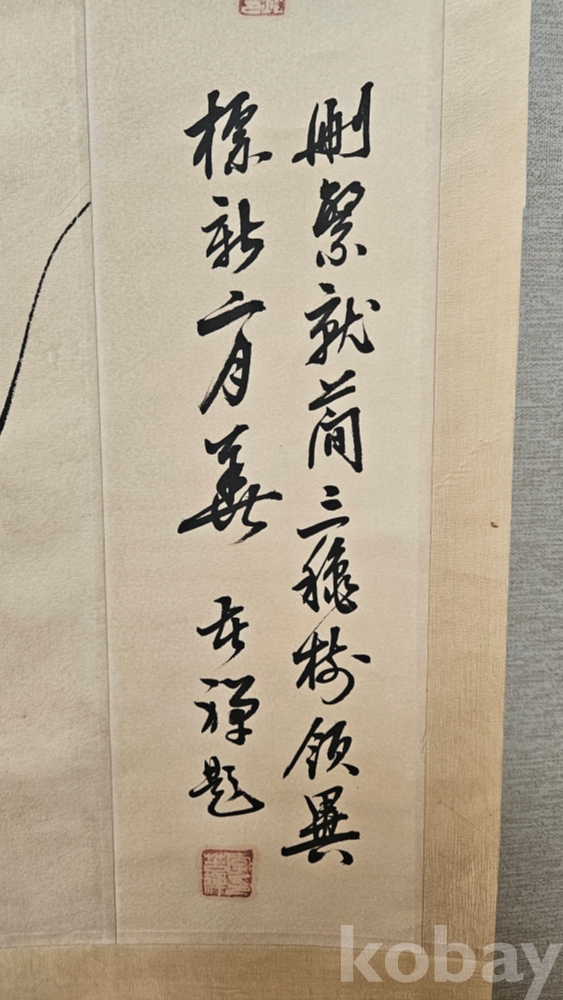 刪繁就簡三穐樹領異
標新二月華 苦禪題
kobay